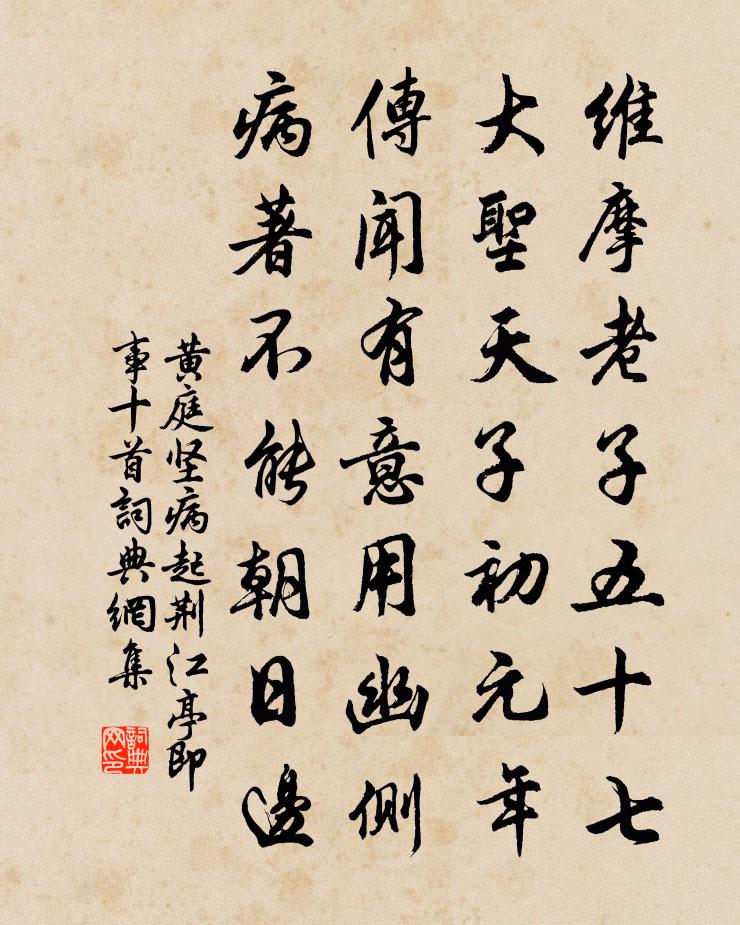 維摩老子五十七
大聖天子初元年
傳聞有意用幽側
病著不能朝日邊
黄庭坚病起荆江亭即
事十首詞典網集
詞典
网印